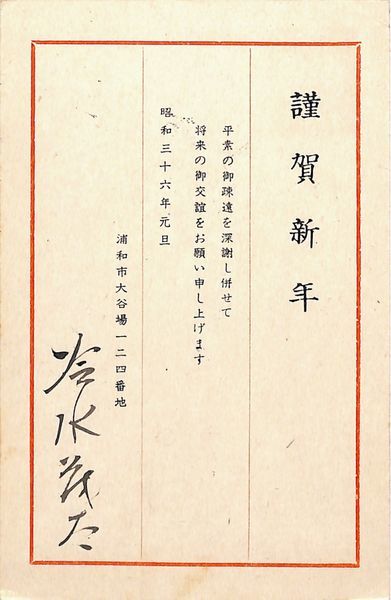 謹賀新年
平素の御疎遠を深謝し併せて
将来の御交誼をお願い申し上げます
昭和三十六年元旦
浦和市大谷場一二四番地
冷水茂太